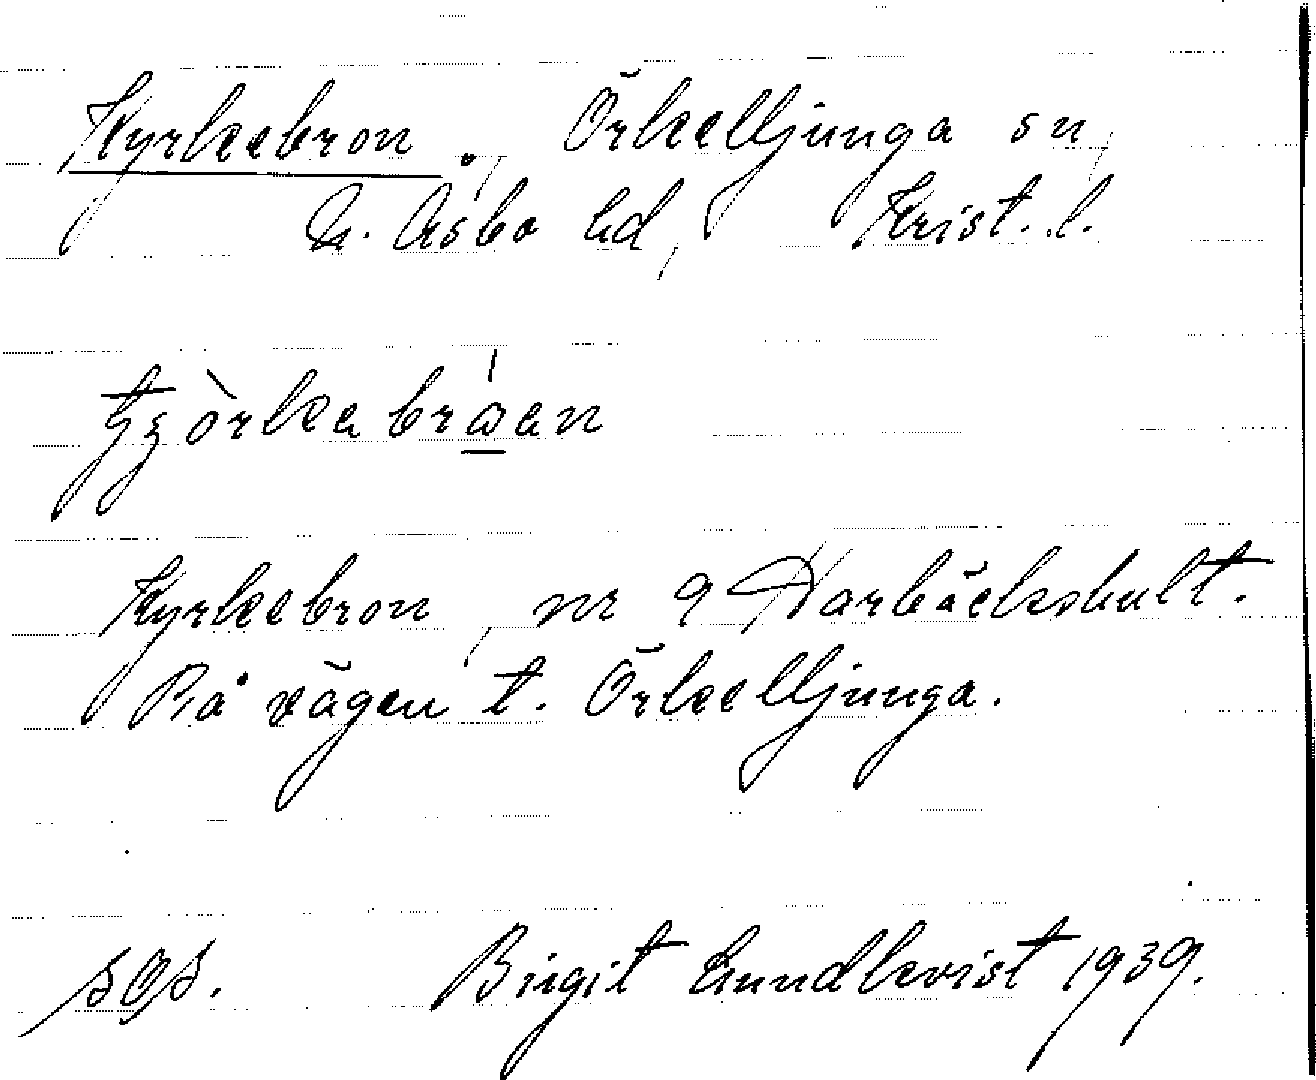 Kyrkebron. Örkelljunga sn,
N. Åsbo hd, Krist. l.
Kyrkebron, nr 9 Harbäckshult.
På vägen t. Örkelljunga.
sgs. Birgit Lundkvist 1939.